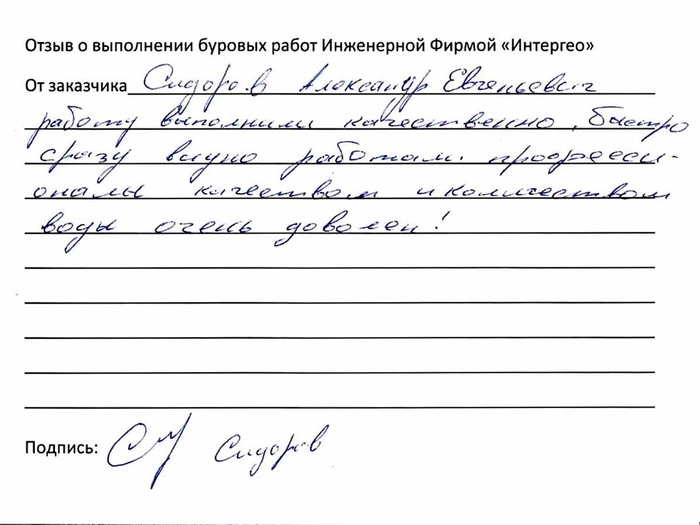 Отзыв о выполнении буровых работ Инженерной Фирмой «Интергео»
От заказчика Сидоров Александр Евгеньевич
работу выполнили качественно, быстро
сразу видно работали профресси-
оналы качеством и количеством
воды очень доволен!
Подпись: Сидоров